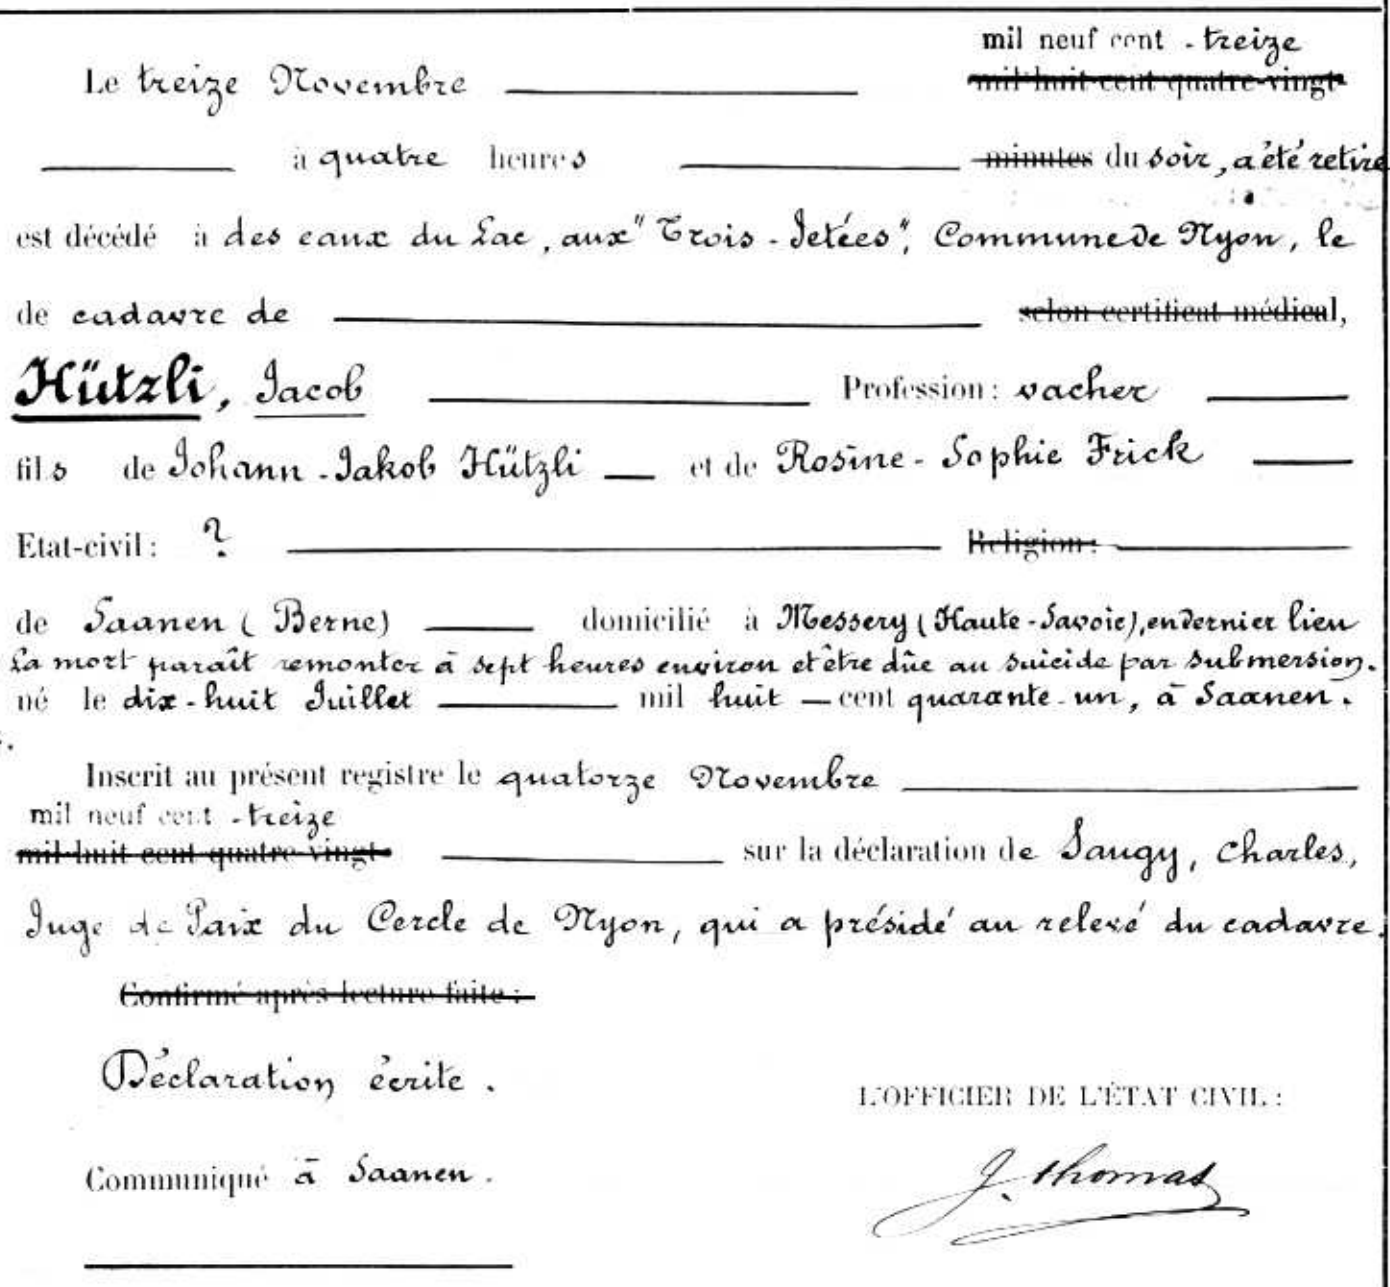 mil neuf cent - treize
Le treize Novembre mil huit cent quatre-vingt
à quatre heures minutes du soir, a été retiré
est décédé à des eaux du Lac, aux "Trois-Jetées", Commune de Nyon, le
de cadavre de selon certificat médical,
Hützli, Jacob Profession: vacher
fils de Johann-Jakob Hützli et de Rosine-Sophie Frick
Etat-civil: ? Religion:
de Saanen (Berne) domicilié à Messery (Haute-Savoie), en dernier lieu
La mort paraît remonter à sept heures environ et être dûe au suicide par submersion.
né le dix-huit Juillet mil huit cent quarante-un, à Saanen.
Inscrit au présent registre le quatorze Novembre
mil neuf cent - treize
mil huit cent quatre vingt sur la déclaration de Saugy, Charles,
Juge de Paix du Cercle de Nyon, qui a présidé au relevé du cadavre.
Confirmé après lecture faite:
Déclaration écrite.
L'OFFICIER DE L'ÉTAT CIVIL:
Communiqué à Saanen.
J. Thomas